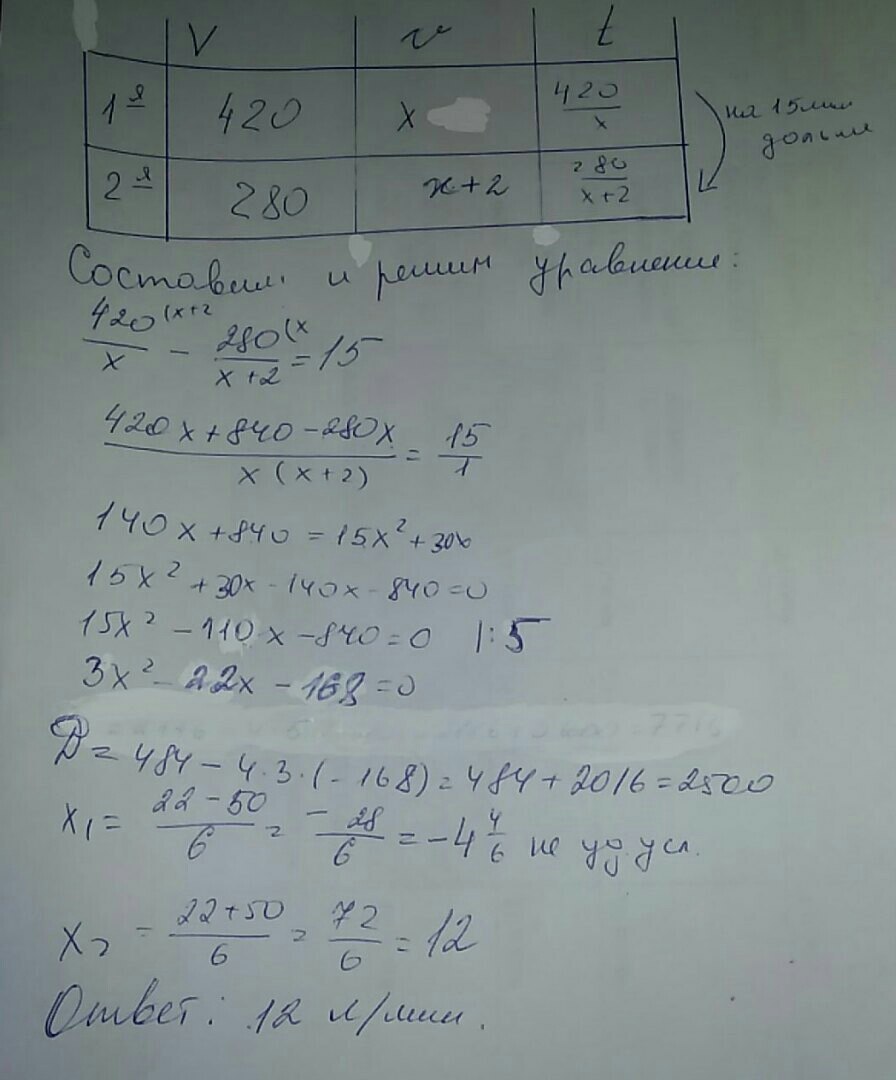 V v t
1я 420 x 420/x
на 15мин
дольше
2я 280 x+2 280/x+2
Составим и решим уравнение:
420(x+2/x - 280(x/x+2 = 15
420x+840-280x/x(x+2) = 15/1
140x+840=15x²+30x
15x²+30x-140x-840=0
15x²-110x-840=0 |:5
3x²-22x-168=0
D=484-4·3·(-168)=484+2016=2500
x₁= 22-50/6 = -28/6 = -4 4/6 не уд. усл.
x₂ = 22+50/6 = 72/6 = 12
Ответ: 12 л/мин.